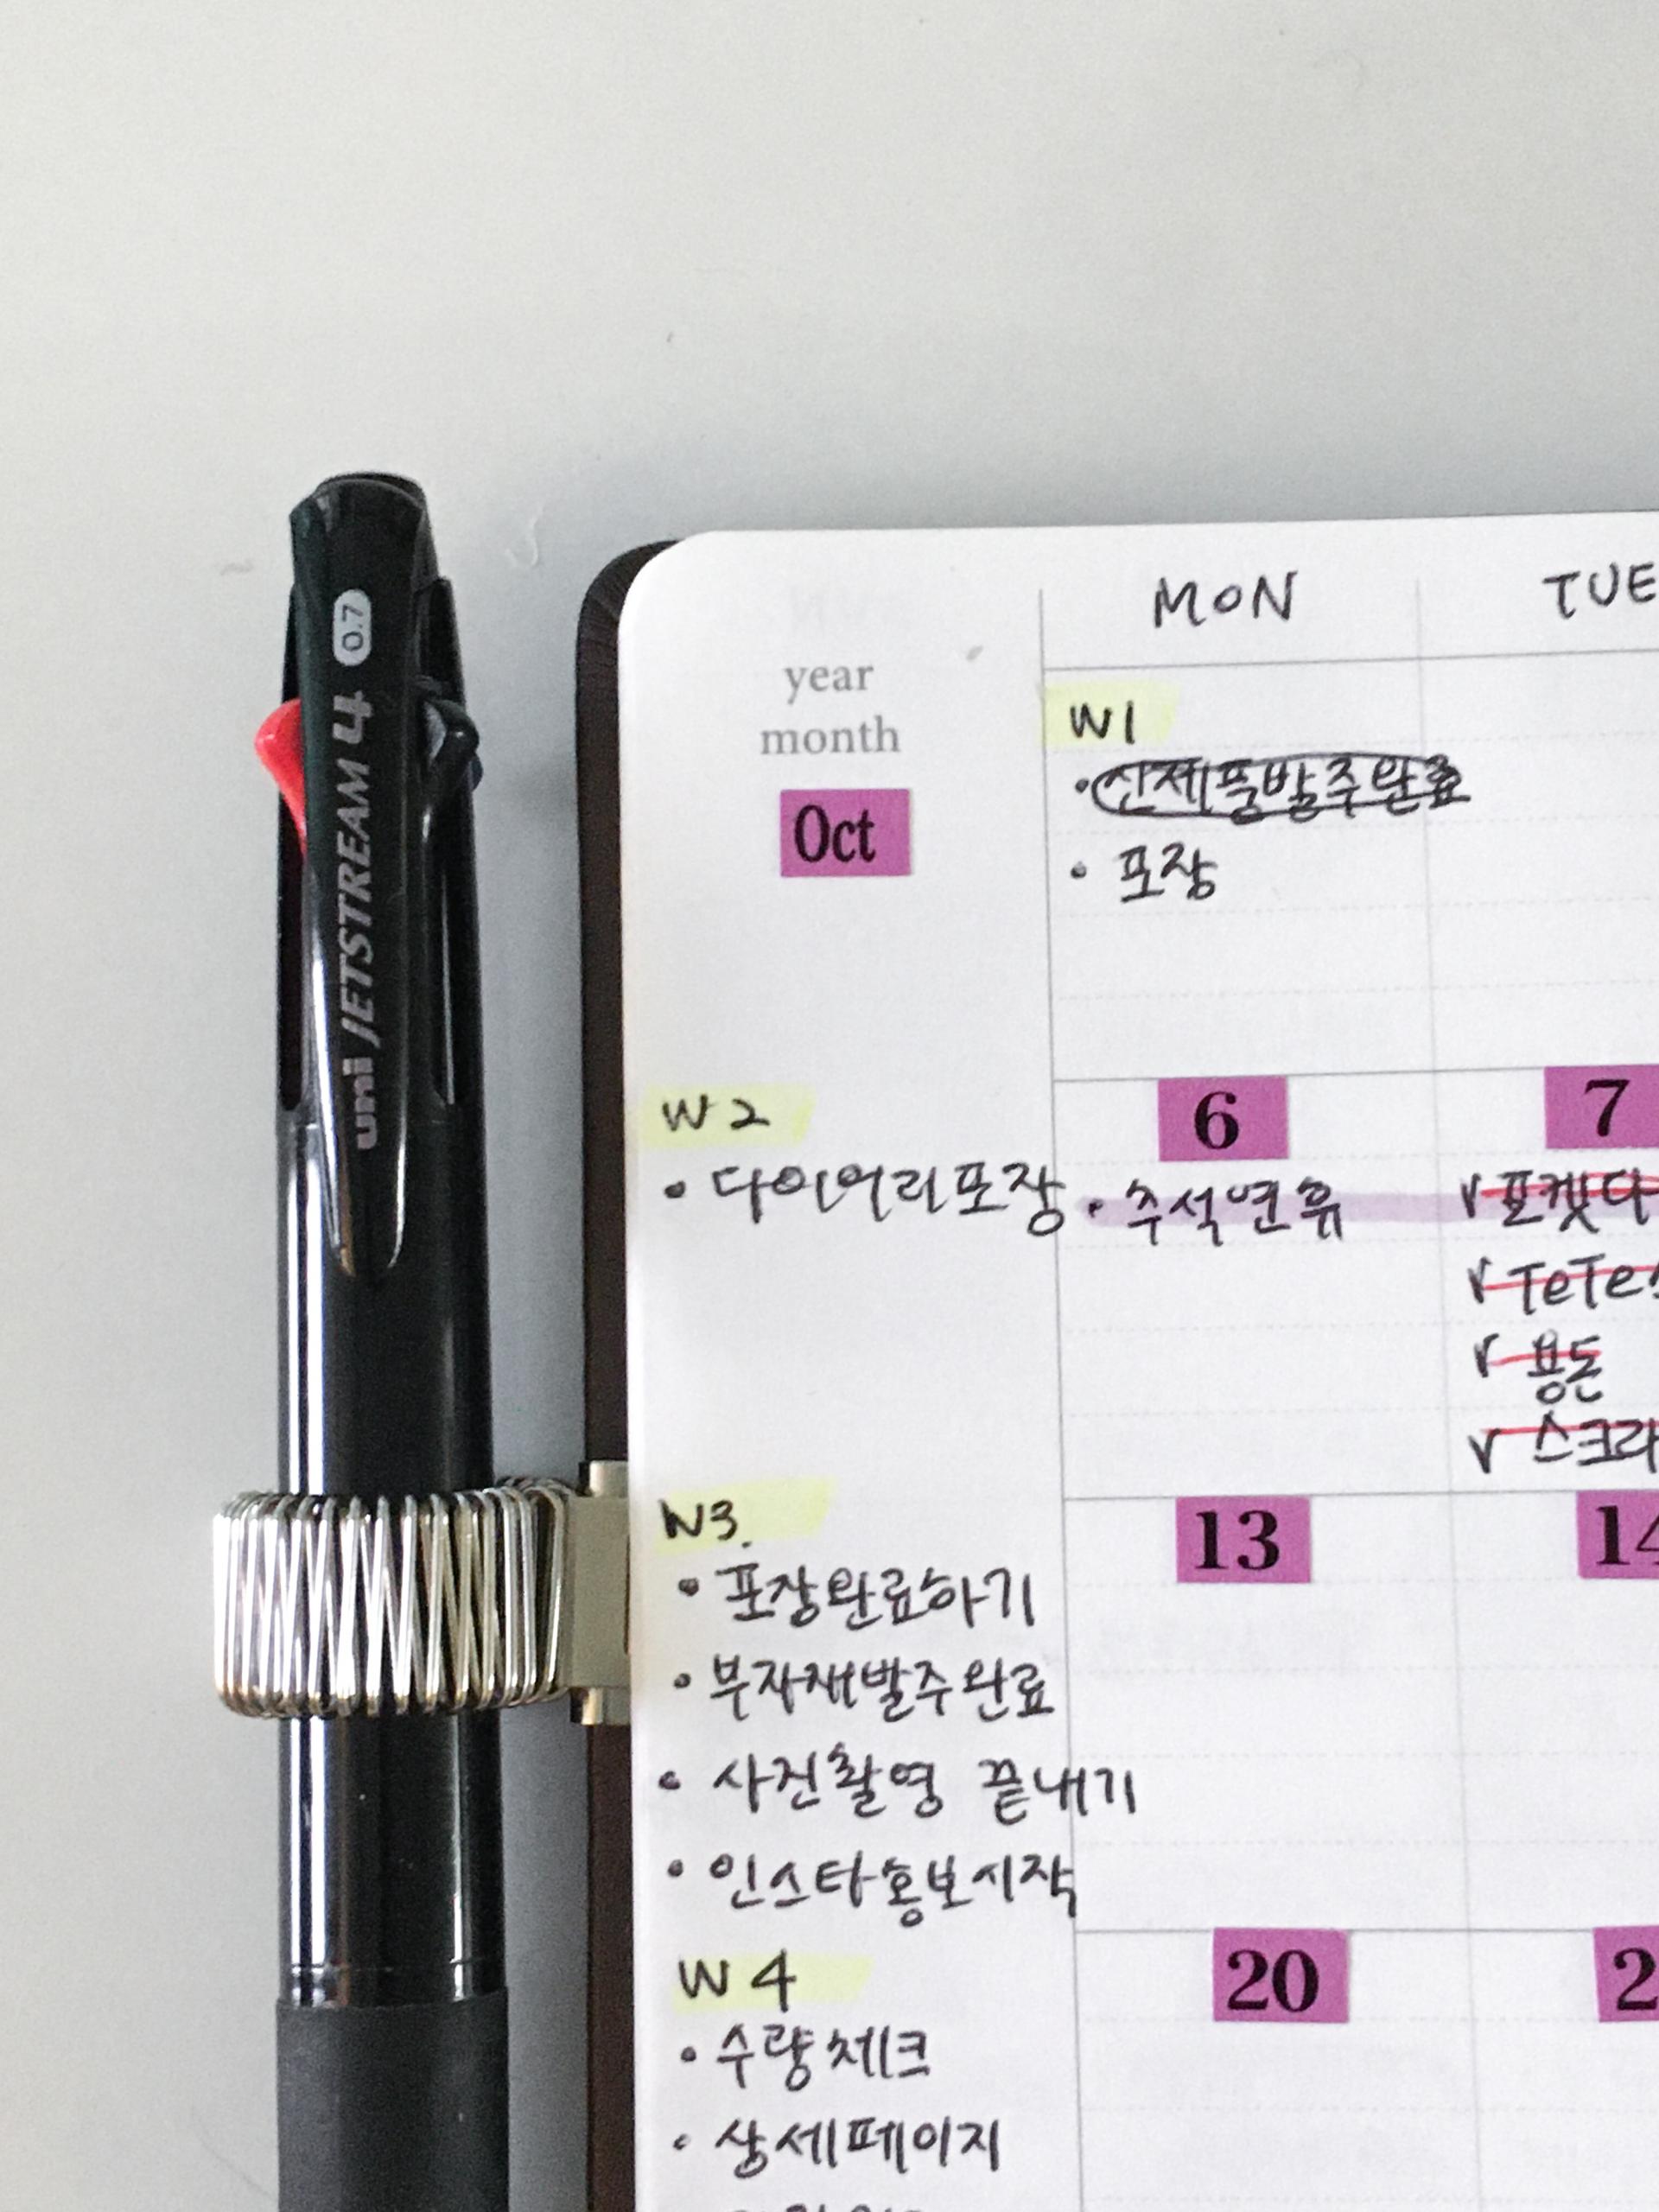 uni JETSTREAM 4 0.7
MON TUE
year
month
Oct
W1
• 신제품발주완료
• 포장
W2
• 다이어리포장
6 7
• 추석연휴
v 포켓다
v TeTe
v 용돈
v 스크라
W3.
• 포장완료하기
• 부자재발주완료
• 사진촬영 끝내기
• 인스타홍보시작
13 14
W4
• 수량체크
• 상세페이지
20 2